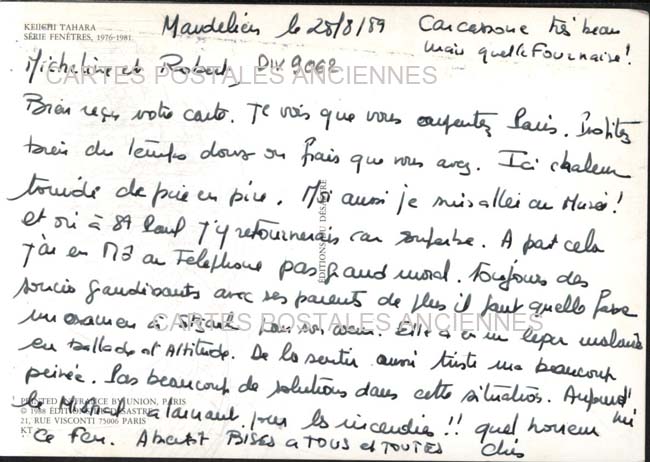 KEIICHI TAHARA
SÉRIE FENÊTRES, 1976-1981.
Mandelieu le 28/8/89
Carcassone très beau
mais quelle Fournaise!
Micheline et Robert,
DIV 9068
CARTES POSTALES ANCIENNES
Bien reçu votre carte. Je vois que vous arpentez Paris. Profitez
bien du temps doux ou frais que vous avez. Ici chaleur
torride de pire en pire. Moi aussi je suis allée au Musée!
et si à 89 j'y retournerais car superbe. A part cela
j'ai eu MJ au Telephone pas grand moral. Toujours des
soucis grandissants avec ses parents de plus il faut quelle fasse
un examen à pour son coeur. Elle a eu un leger malaise
en ballade et Altitude. De la sentir aussi triste m'a beaucoup
peinée. Pas beaucoup de solutions dans cette situation. Aujourd'hui
le Mistral alarmant pour les incendies!! quel horreur
ce feu. A bientot BISES a TOUS et TOUTES
EDITIONS DU DÉSASTRE
CARTES POSTALES ANCIENNES
PRINTED IN FRANCE BY UNION, PARIS
© 1988 ÉDITIONS DU DÉSASTRE
21, RUE VISCONTI 75006 PARIS
KT